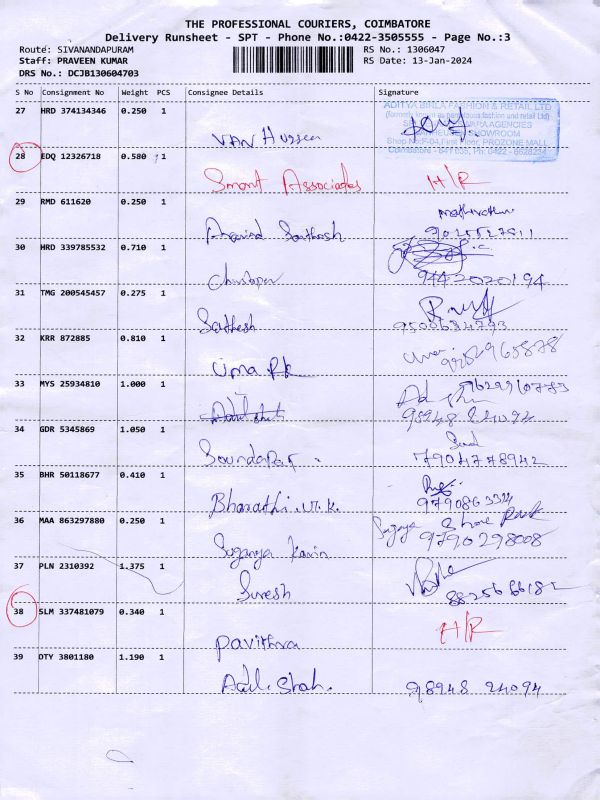 THE PROFESSIONAL COURIERS, COIMBATORE
Delivery Runsheet - SPT - Phone No.:0422-3505555 - Page No.:3
Route: SIVANANDAPURAM RS No.: 1306047
Staff: PRAVEEN KUMAR RS Date: 13-Jan-2024
DRS No.: DCJB130604703
S No Consignment No Weight PCS Consignee Details Signature
27 HRD 374134346 0.250 1
ADITYA BIRLA FASHION & RETAIL LTD
SHOWROOM
VAN Hussen
28 EDQ 12326718 0.580 1
Smart Associates H/R
29 RMD 611620 0.250 1
Aravind Santhosh
30 HRD 339785532 0.710 1
9442020194
31 TMG 200545457 0.275 1
Sathesh 9500634793
32 KRR 872885 0.810 1
Uma RK
33 MYS 25934810 1.000 1
98948 24094
34 GDR 5345869 1.050 1
Soundapar 7904778942
35 BHR 50118677 0.410 1
Bharathi.V.K.
36 MAA 863297880 0.250 1
Suganya Kavin 9790298008
37 PLN 2310392 1.375 1
Suresh
38 SLM 337481079 0.340 1
H/R
Pavithra
39 OTY 3801180 1.190 1
Adil Shah. 98948 24094